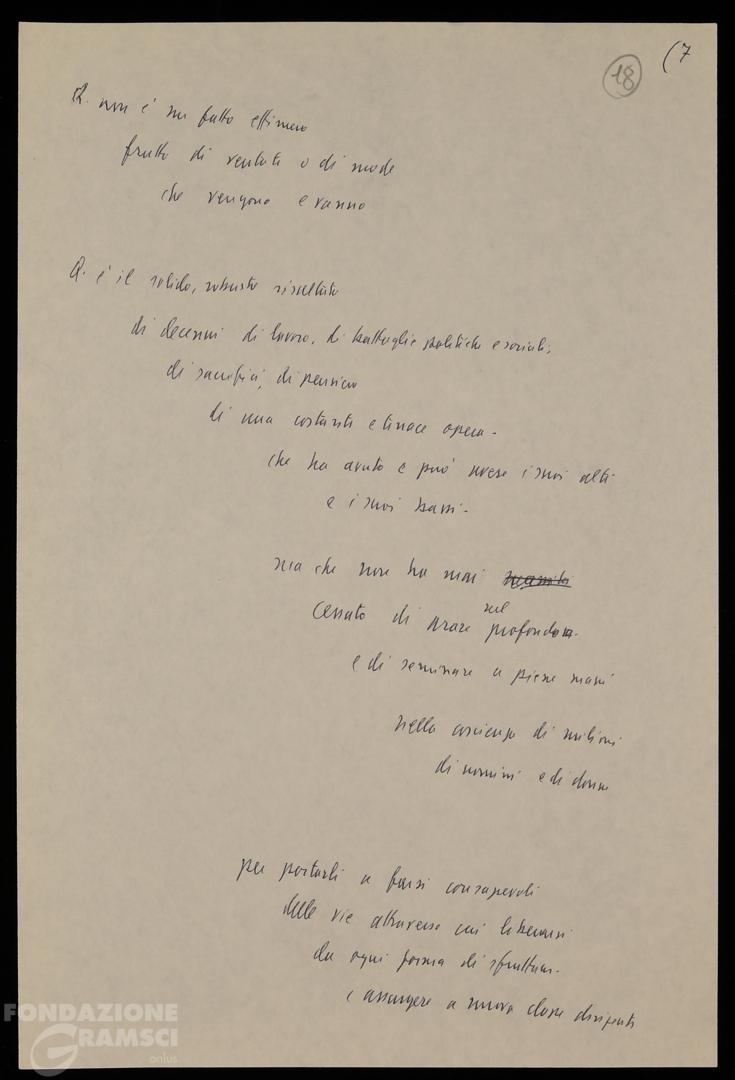 18 (7
Q. non è un fatto effimero
frutto di ventate o di mode
che vengono e vanno
Q. è il solido, robusto risultato
di decenni di lavoro, di battaglie politiche e sociali,
di sacrifici, di pensiero
di una costante e tenace opera -
che ha avuto e può avere i suoi alti
e i suoi bassi -
ma che non ha mai
cessato di arare nel profondo
e di seminare a piene mani
nella coscienza di milioni
di uomini e di donne
per portarli a farsi consapevoli
delle vie attraverso cui liberarsi
da ogni forma di sfruttam.
e assurgere a nuova classe dirigente
FONDAZIONE
GRAMSCI
onlus